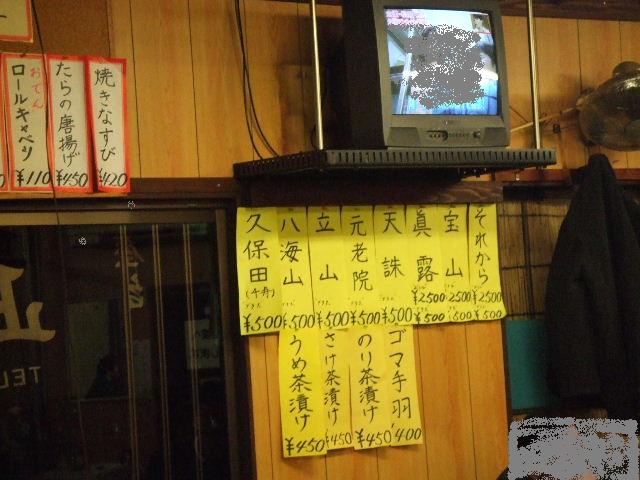 焼きなすび
¥420
たらの唐揚げ
¥450
おでん
ロールキャベツ
¥110
それから
¥2500
¥500
宝山
2500
¥500
眞露
¥2500
¥500
天誅
¥500
元老院
¥500
立山
¥500
八海山
¥500
久保田
(千寿)
¥500
ゴマ手羽
¥400
のり茶漬け
¥450
さけ茶漬け
¥450
うめ茶漬け
¥450
正
TEL